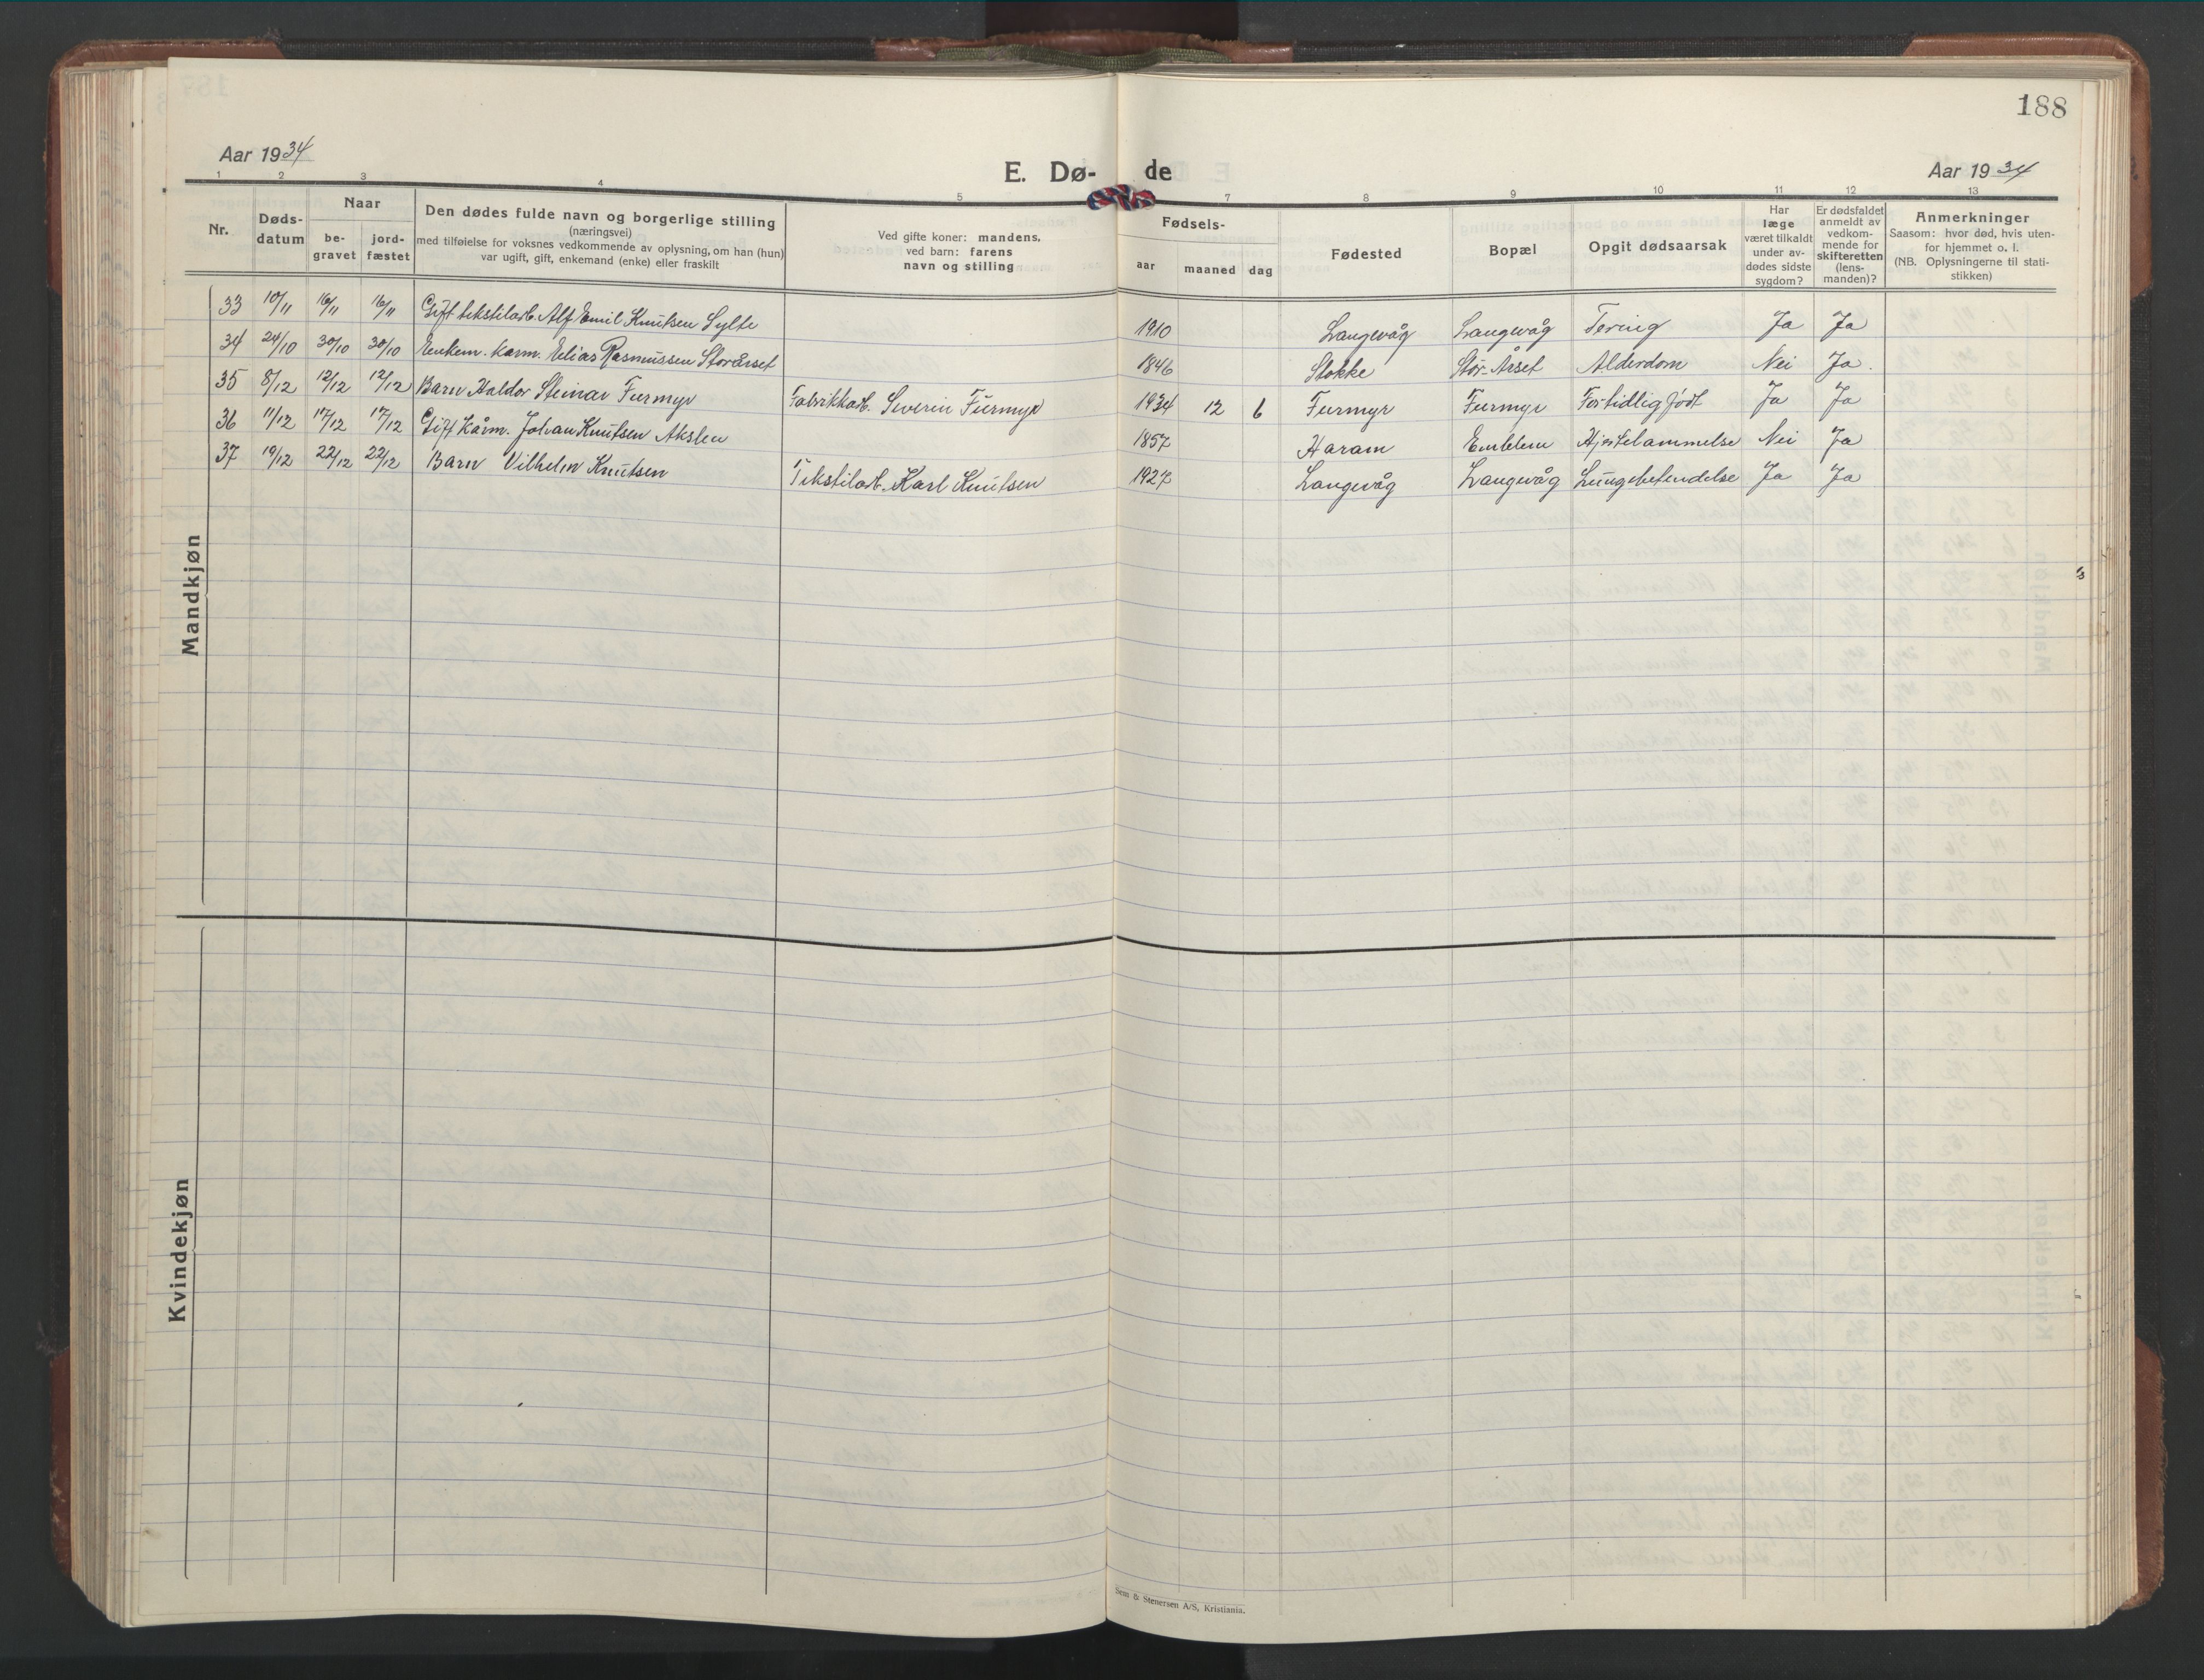 188
Aar 1934
E. Dø- de
Aar 1934
1 2 3 4 5 7 8 9 10 11 12 13
Nr.
Døds-
datum
Naar
be-
gravet
jord-
fæstet
Den dødes fulde navn og borgerlige stilling
(næringsvei)
med tilføielse for voksnes vedkommende av oplysning, om han (hun)
var ugift, gift, enkemand (enke) eller fraskilt
Ved gifte koner: mandens,
ved barn: farens
navn og stilling
Fødsels-
aar maaned dag
Fødested
Bopæl
Opgit dødsaarsak
Har
læge
været tilkaldt
under av-
dødes sidste
sygdom?
Er dødsfaldet
anmeldt av
vedkom-
mende for
skifteretten
(lens-
manden)?
Anmerkninger
Saasom: hvor død, hvis uten-
for hjemmet o. l.
(NB. Oplysningerne til stati-
stikken)
Mandkjøn
33 10/11 16/11 16/11 Gift tekstilarb. Alf Emil Knutsen Sylte 1910 Langevåg Langevåg Tering Ja Ja
34 24/10 30/10 30/10 Enkem. karm. Elias Rasmussen Storårset 1846 Stokke Stor-Årset Alderdom Nei Ja.
35 8/12 12/12 12/12 Barn Haldor Steinar Furmyr Fabrikkarb. Severin Furmyr 1934 12 6 Furmyr Furmyr For tidlig født Ja Ja
36 11/12 17/12 17/12 Gift kårm. Johan Knutsen Akslen 1857 Haram Emblem Hjertelammelse Nei Ja
37 19/12 22/12 22/12 Barn Vilhelm Knutsen Tekstilarb. Karl Knutsen 1927 Langevåg Langevåg Lungebetendelse Ja Ja
Kvindekjøn
Sem & Stenersen A/S, Kristiania.